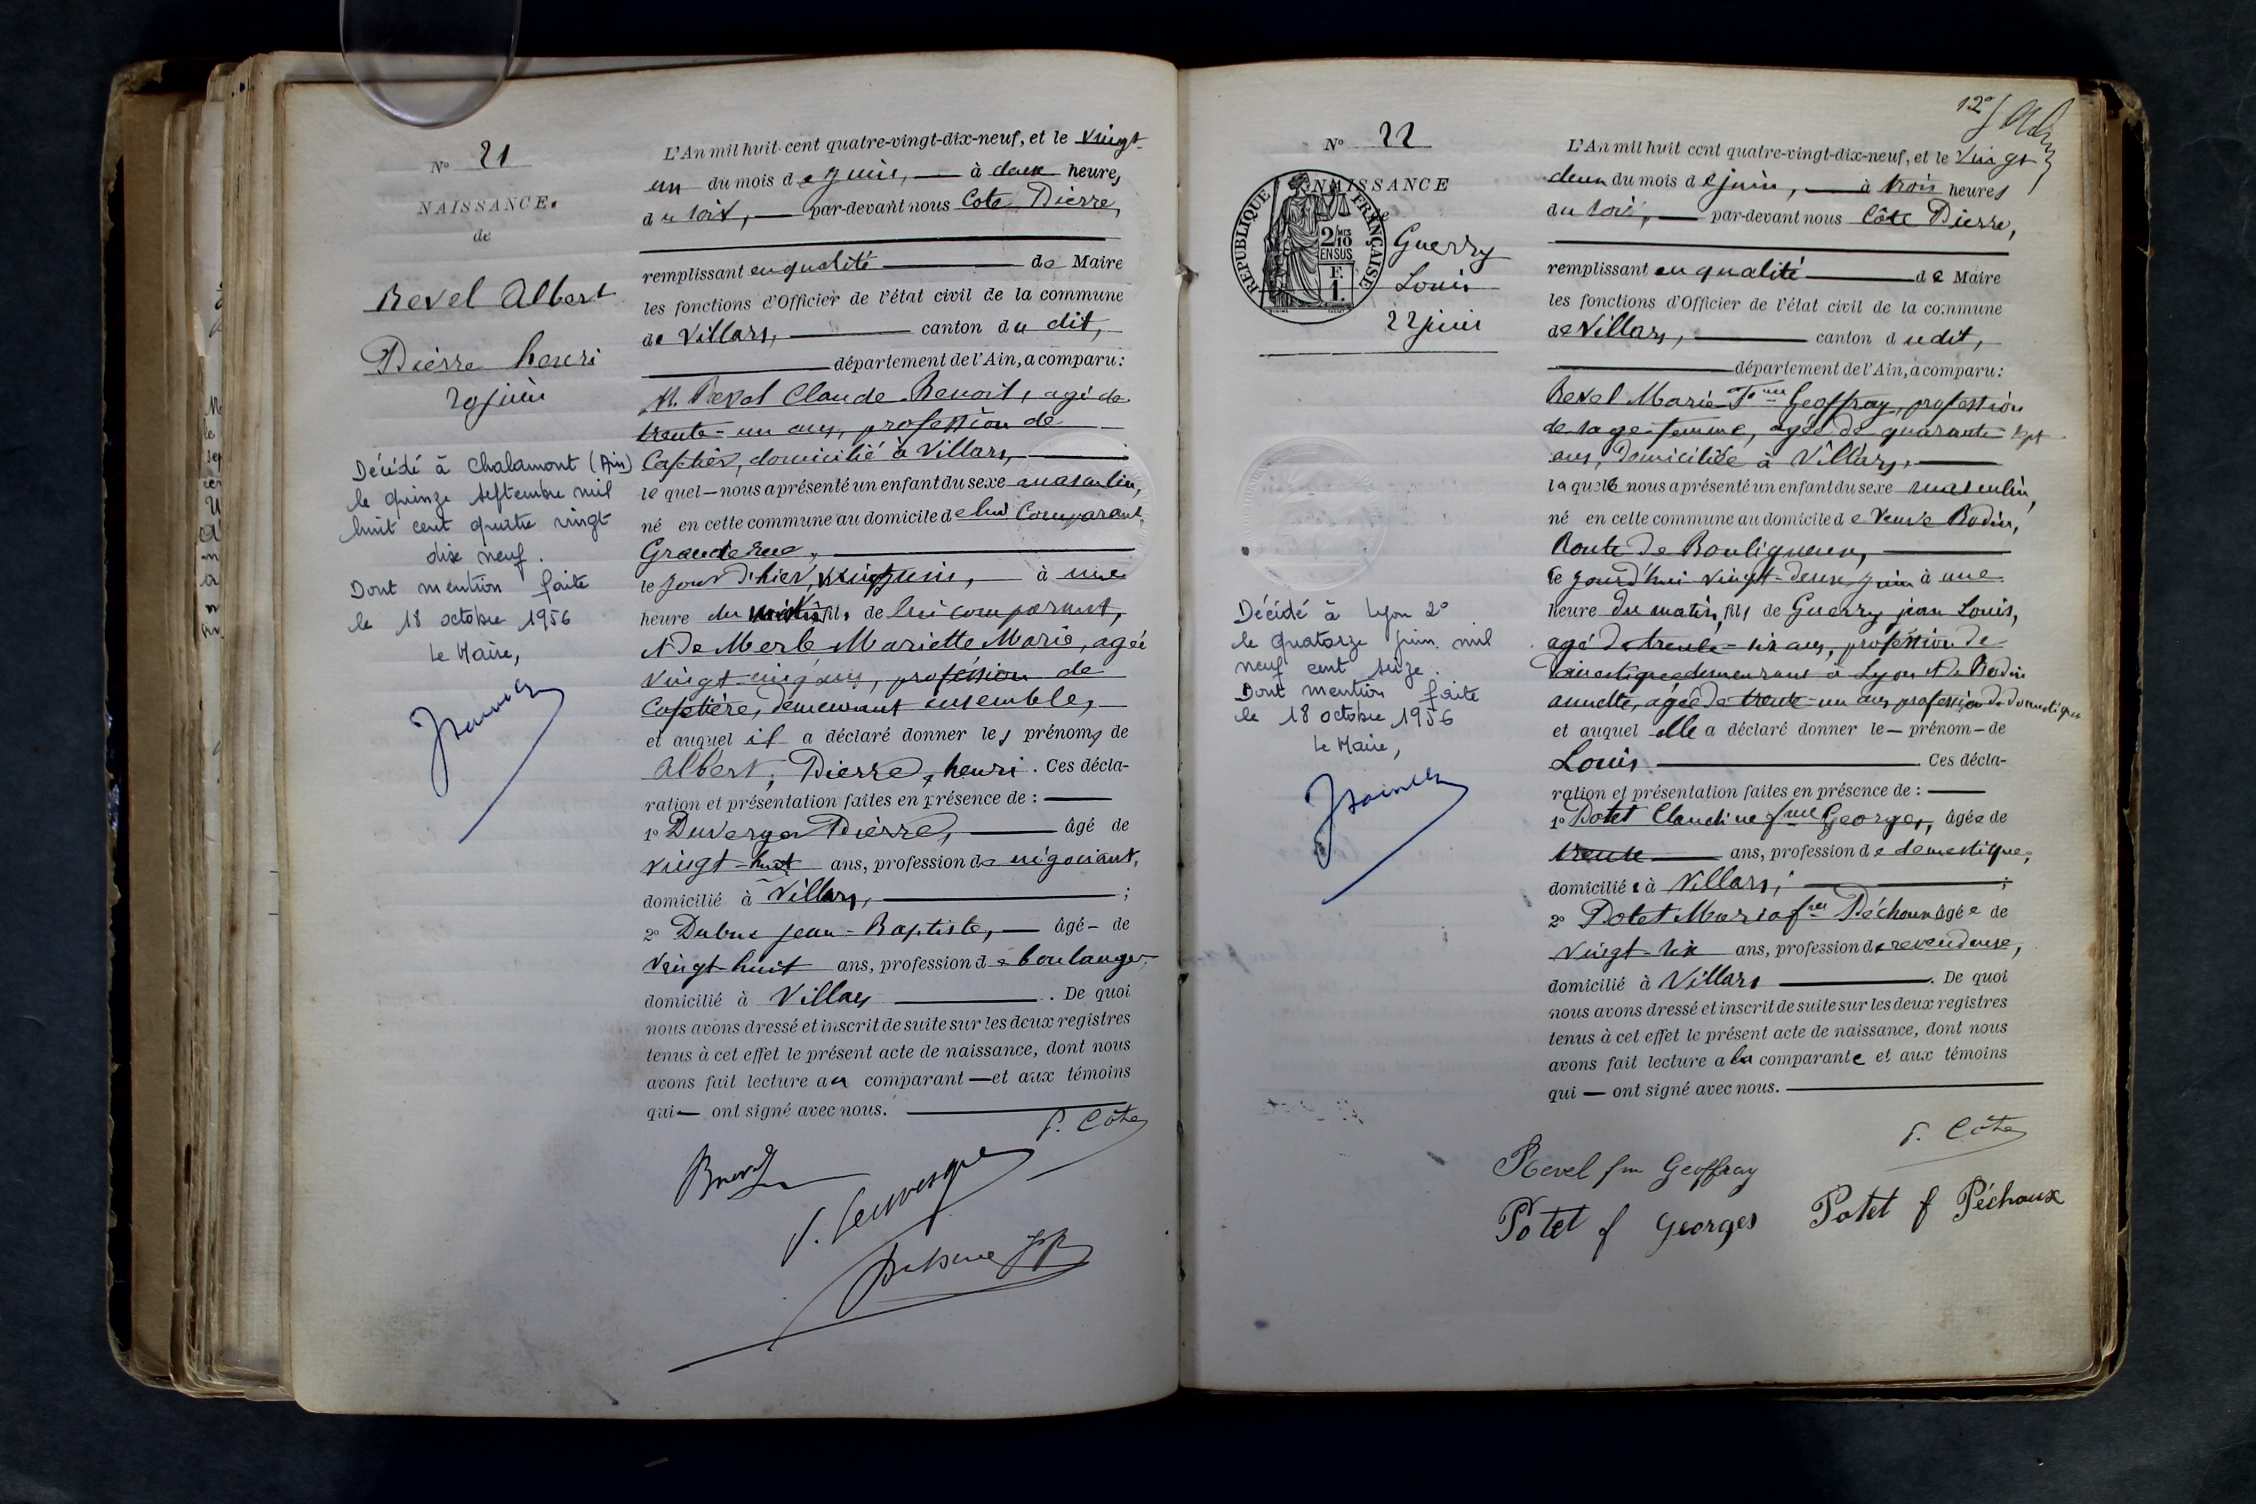 N° 21
NAISSANCE.
de
Revel Albert
Pierre henri
20 juin
Décédé à Chalamont (Ain)
le quinze septembre mil
huit cent quatre vingt
dix neuf.
Dont mention faite
le 18 octobre 1956
Le Maire,
L'An mil huit cent quatre-vingt-dix-neuf, et le vingt-
un du mois de juin, à deux heures
du soir, par-devant nous Cote Pierre,
remplissant en qualité de Maire
les fonctions d'Officier de l'état civil de la commune
de Villars, canton du dit,
département de l'Ain, a comparu:
M. Revel Claude Benoit, agé de
trente-un ans, profession de
Cafetier, domicilié à Villars,
lequel nous a présenté un enfant du sexe masculin,
né en cette commune au domicile de lui Comparant,
Grande rue,
le jour d'hier, vingt juin, à une
heure du fils de lui comparant,
& de Merle Mariette Marie, agée
vingt-cinq ans, profession de
Cafetière, demeurant ensemble,
et auquel il a déclaré donner les prénoms de
Albert, Pierre, henri. Ces décla-
ration et présentation faites en présence de :
1° Duverger Pierre, âgé de
vingt-huit ans, profession de négociant,
domicilié à Villars, ;
2° Dubuc jean-Baptiste, âgé de
vingt-huit ans, profession de boulanger
domicilié à Villars . De quoi
nous avons dressé et inscrit de suite sur les deux registres
tenus à cet effet le présent acte de naissance, dont nous
avons fait lecture au comparant et aux témoins
qui ont signé avec nous.
P. Côte
12°
N° 22
NAISSANCE
de
REPUBLIQUE FRANÇAISE
2/10 MES
EN SUS
F.
1.
Guerry
Louis
22 juin
Décédé à Lyon 2°
le quatorze juin mil
neuf cent seize.
Dont mention faite
le 18 octobre 1956
Le Maire,
L'An mil huit cent quatre-vingt-dix-neuf, et le vingt
deux du mois de juin, à trois heures
du soir, par-devant nous Côte Pierre,
remplissant en qualité de Maire
les fonctions d'Officier de l'état civil de la commune
de Villars, canton dudit,
département de l'Ain, a comparu:
Revel Marie Fme Geoffray, profession
de sage-femme, agée de quarante-sept
ans, domiciliée à Villars,
laquelle nous a présenté un enfant du sexe masculin,
né en cette commune au domicile de Veuve Bodin,
Route de Bouligneux,
le jourd'hui vingt-deux juin à une
heure du matin, fils de Guerry jean Louis,
agé de trente-six ans, profession de
domestique demeurant à Lyon & de Bodin
annette, agée de trente-un ans, profession de domestique
et auquel elle a déclaré donner le prénom de
Louis . Ces décla-
ration et présentation faites en présence de :
1° Potet Claudine fme Georges, âgée de
trente ans, profession de domestique,
domiciliée à Villars, ;
2° Potet Maria fme Péchoux âgée de
vingt-six ans, profession de revendeuse,
domicilié à Villars . De quoi
nous avons dressé et inscrit de suite sur les deux registres
tenus à cet effet le présent acte de naissance, dont nous
avons fait lecture a la comparante et aux témoins
qui ont signé avec nous.
P. Côte
Revel fm Geoffray
Potet f Georges Potet f Péchoux